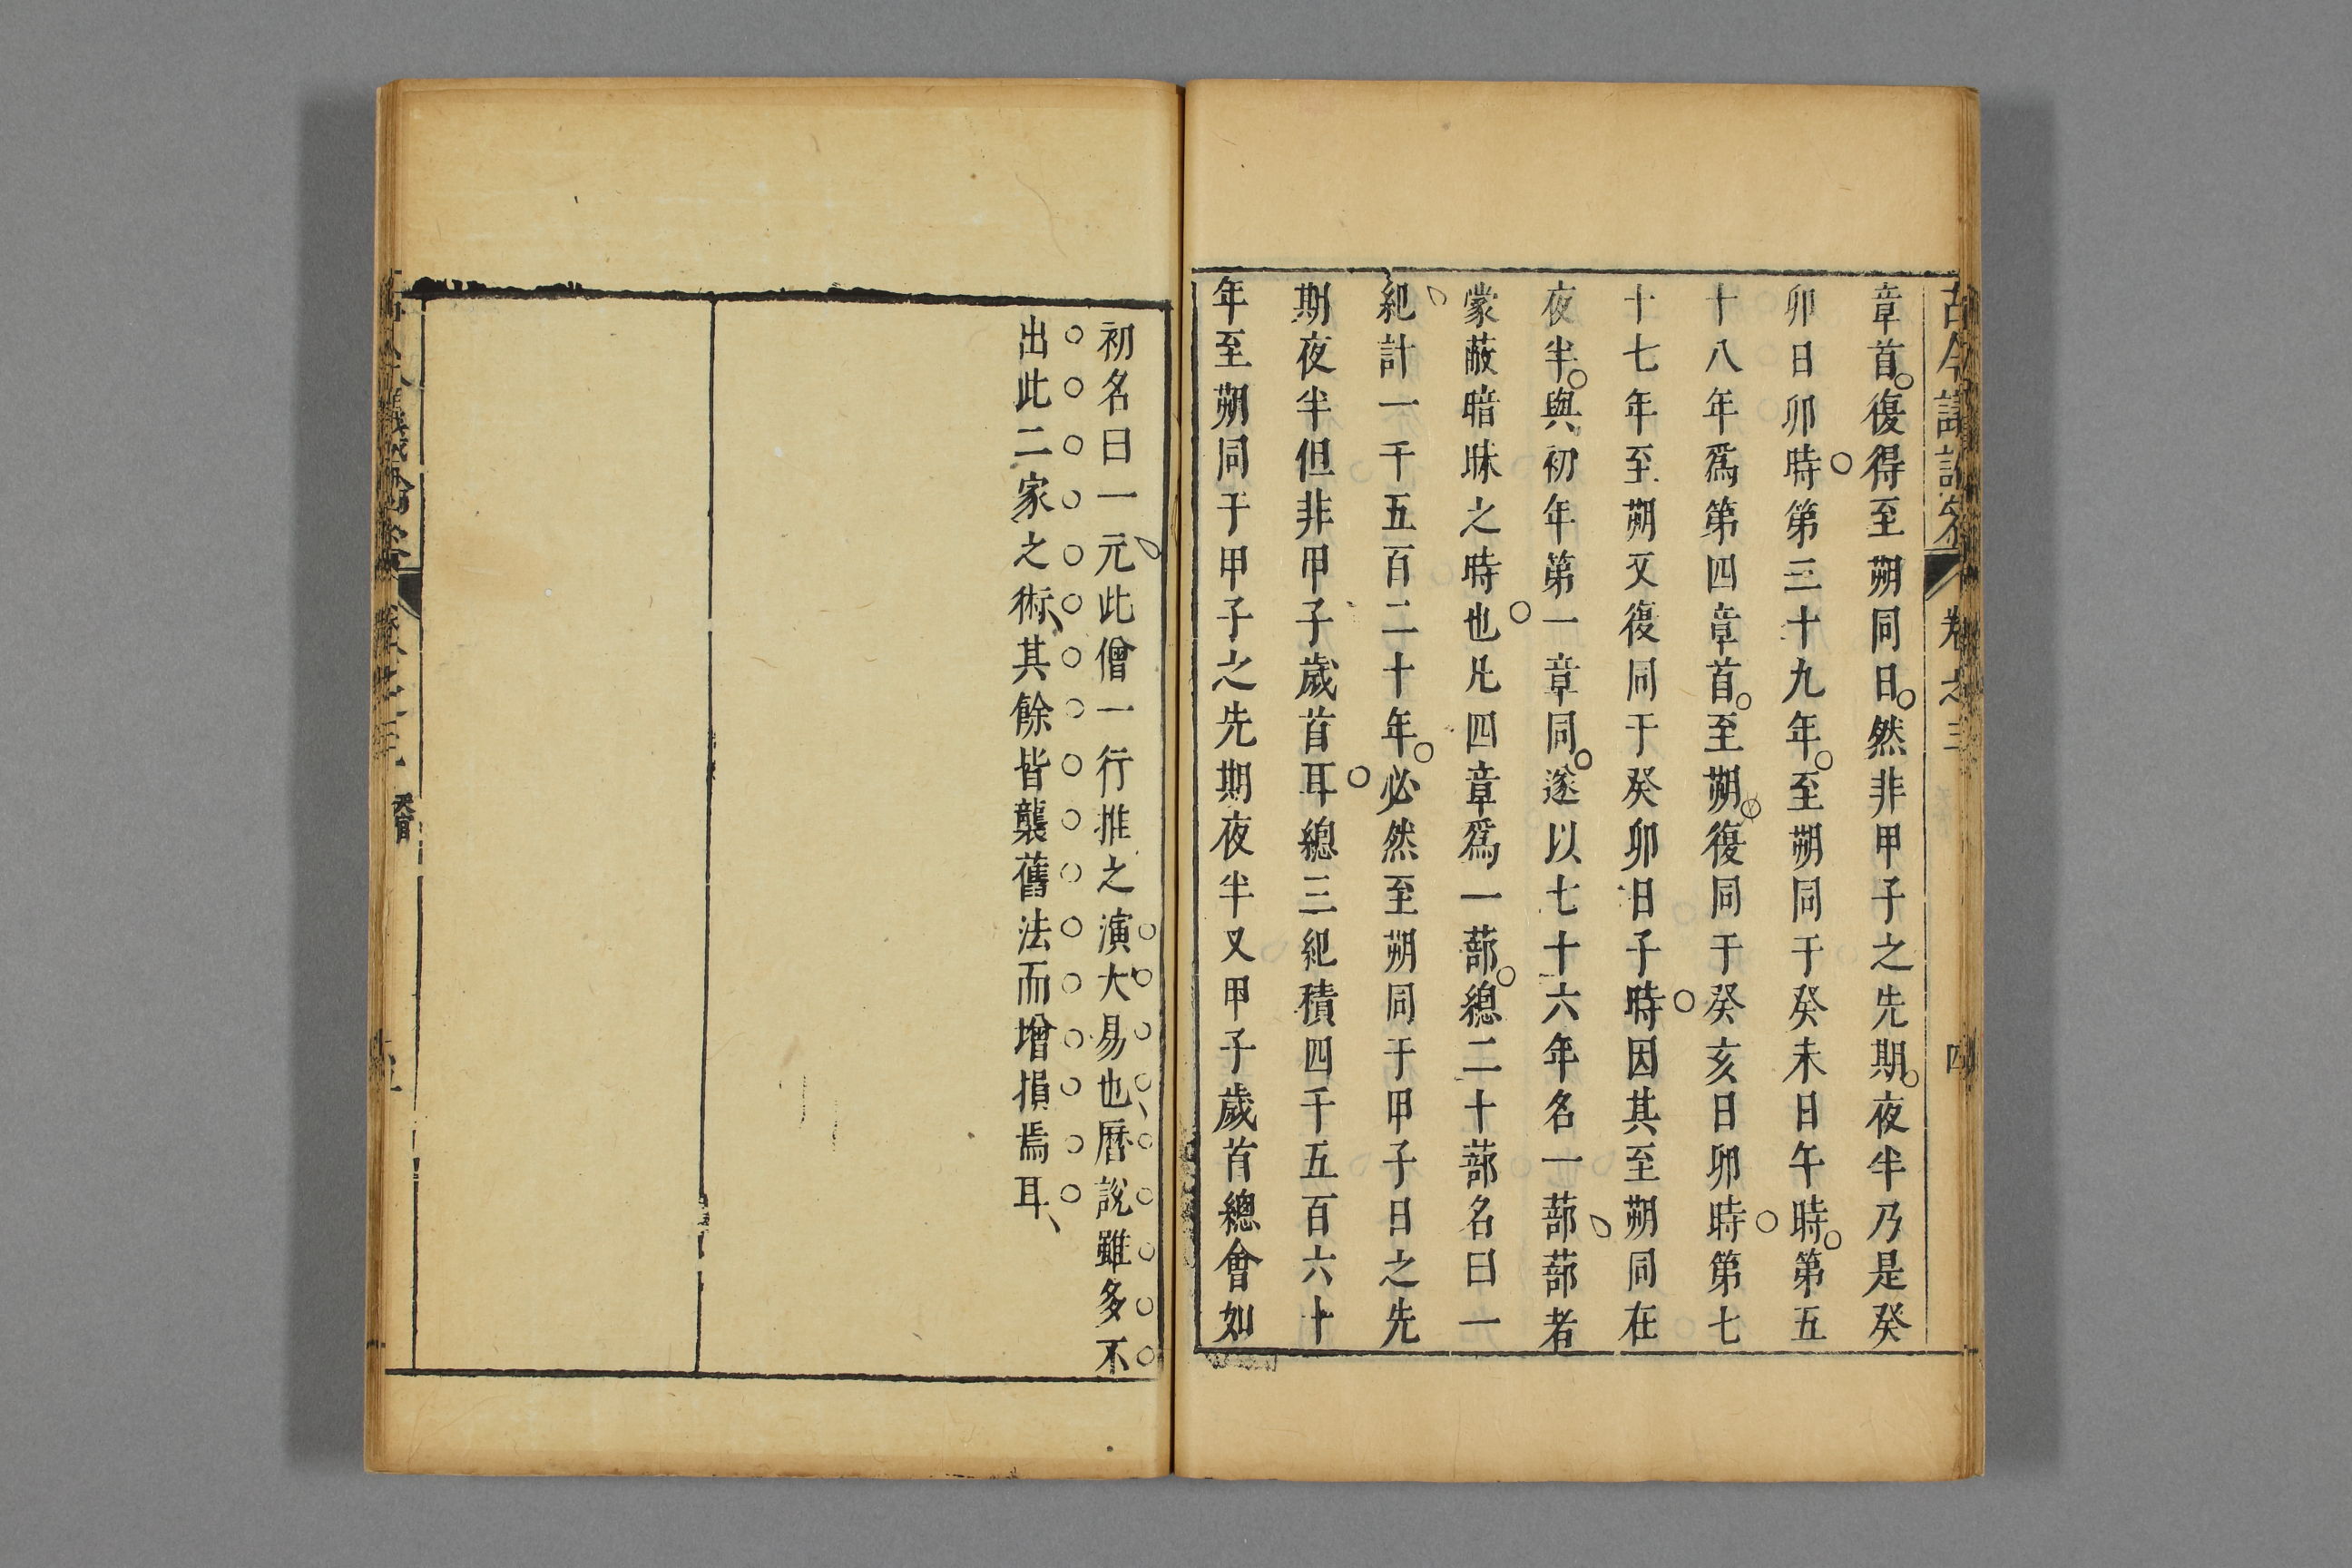 章首復得至朔同日然非甲子之先期夜半乃是癸
卯日卯時第三十九年至朔同于癸未日午時第五
十八年爲第四章首至朔復同于癸亥日卯時第七
十七年至朔又復同于癸卯日子時因其至朔同在
夜半與初年第一章同遂以七十六年名一蔀蔀者
蒙蔽暗昧之時也凡四章爲一蔀總二十蔀名曰一
紀計一千五百二十年必然至朔同于甲子日之先
期夜半但非甲子歲首耳總三紀積四千五百六十
年至朔同于甲子之先期夜半又甲子歲首總會如
初名曰一元此僧一行推之演大易也曆說雖多不
出此二家之術其餘皆襲舊法而增損焉耳
卷之三
四
天官